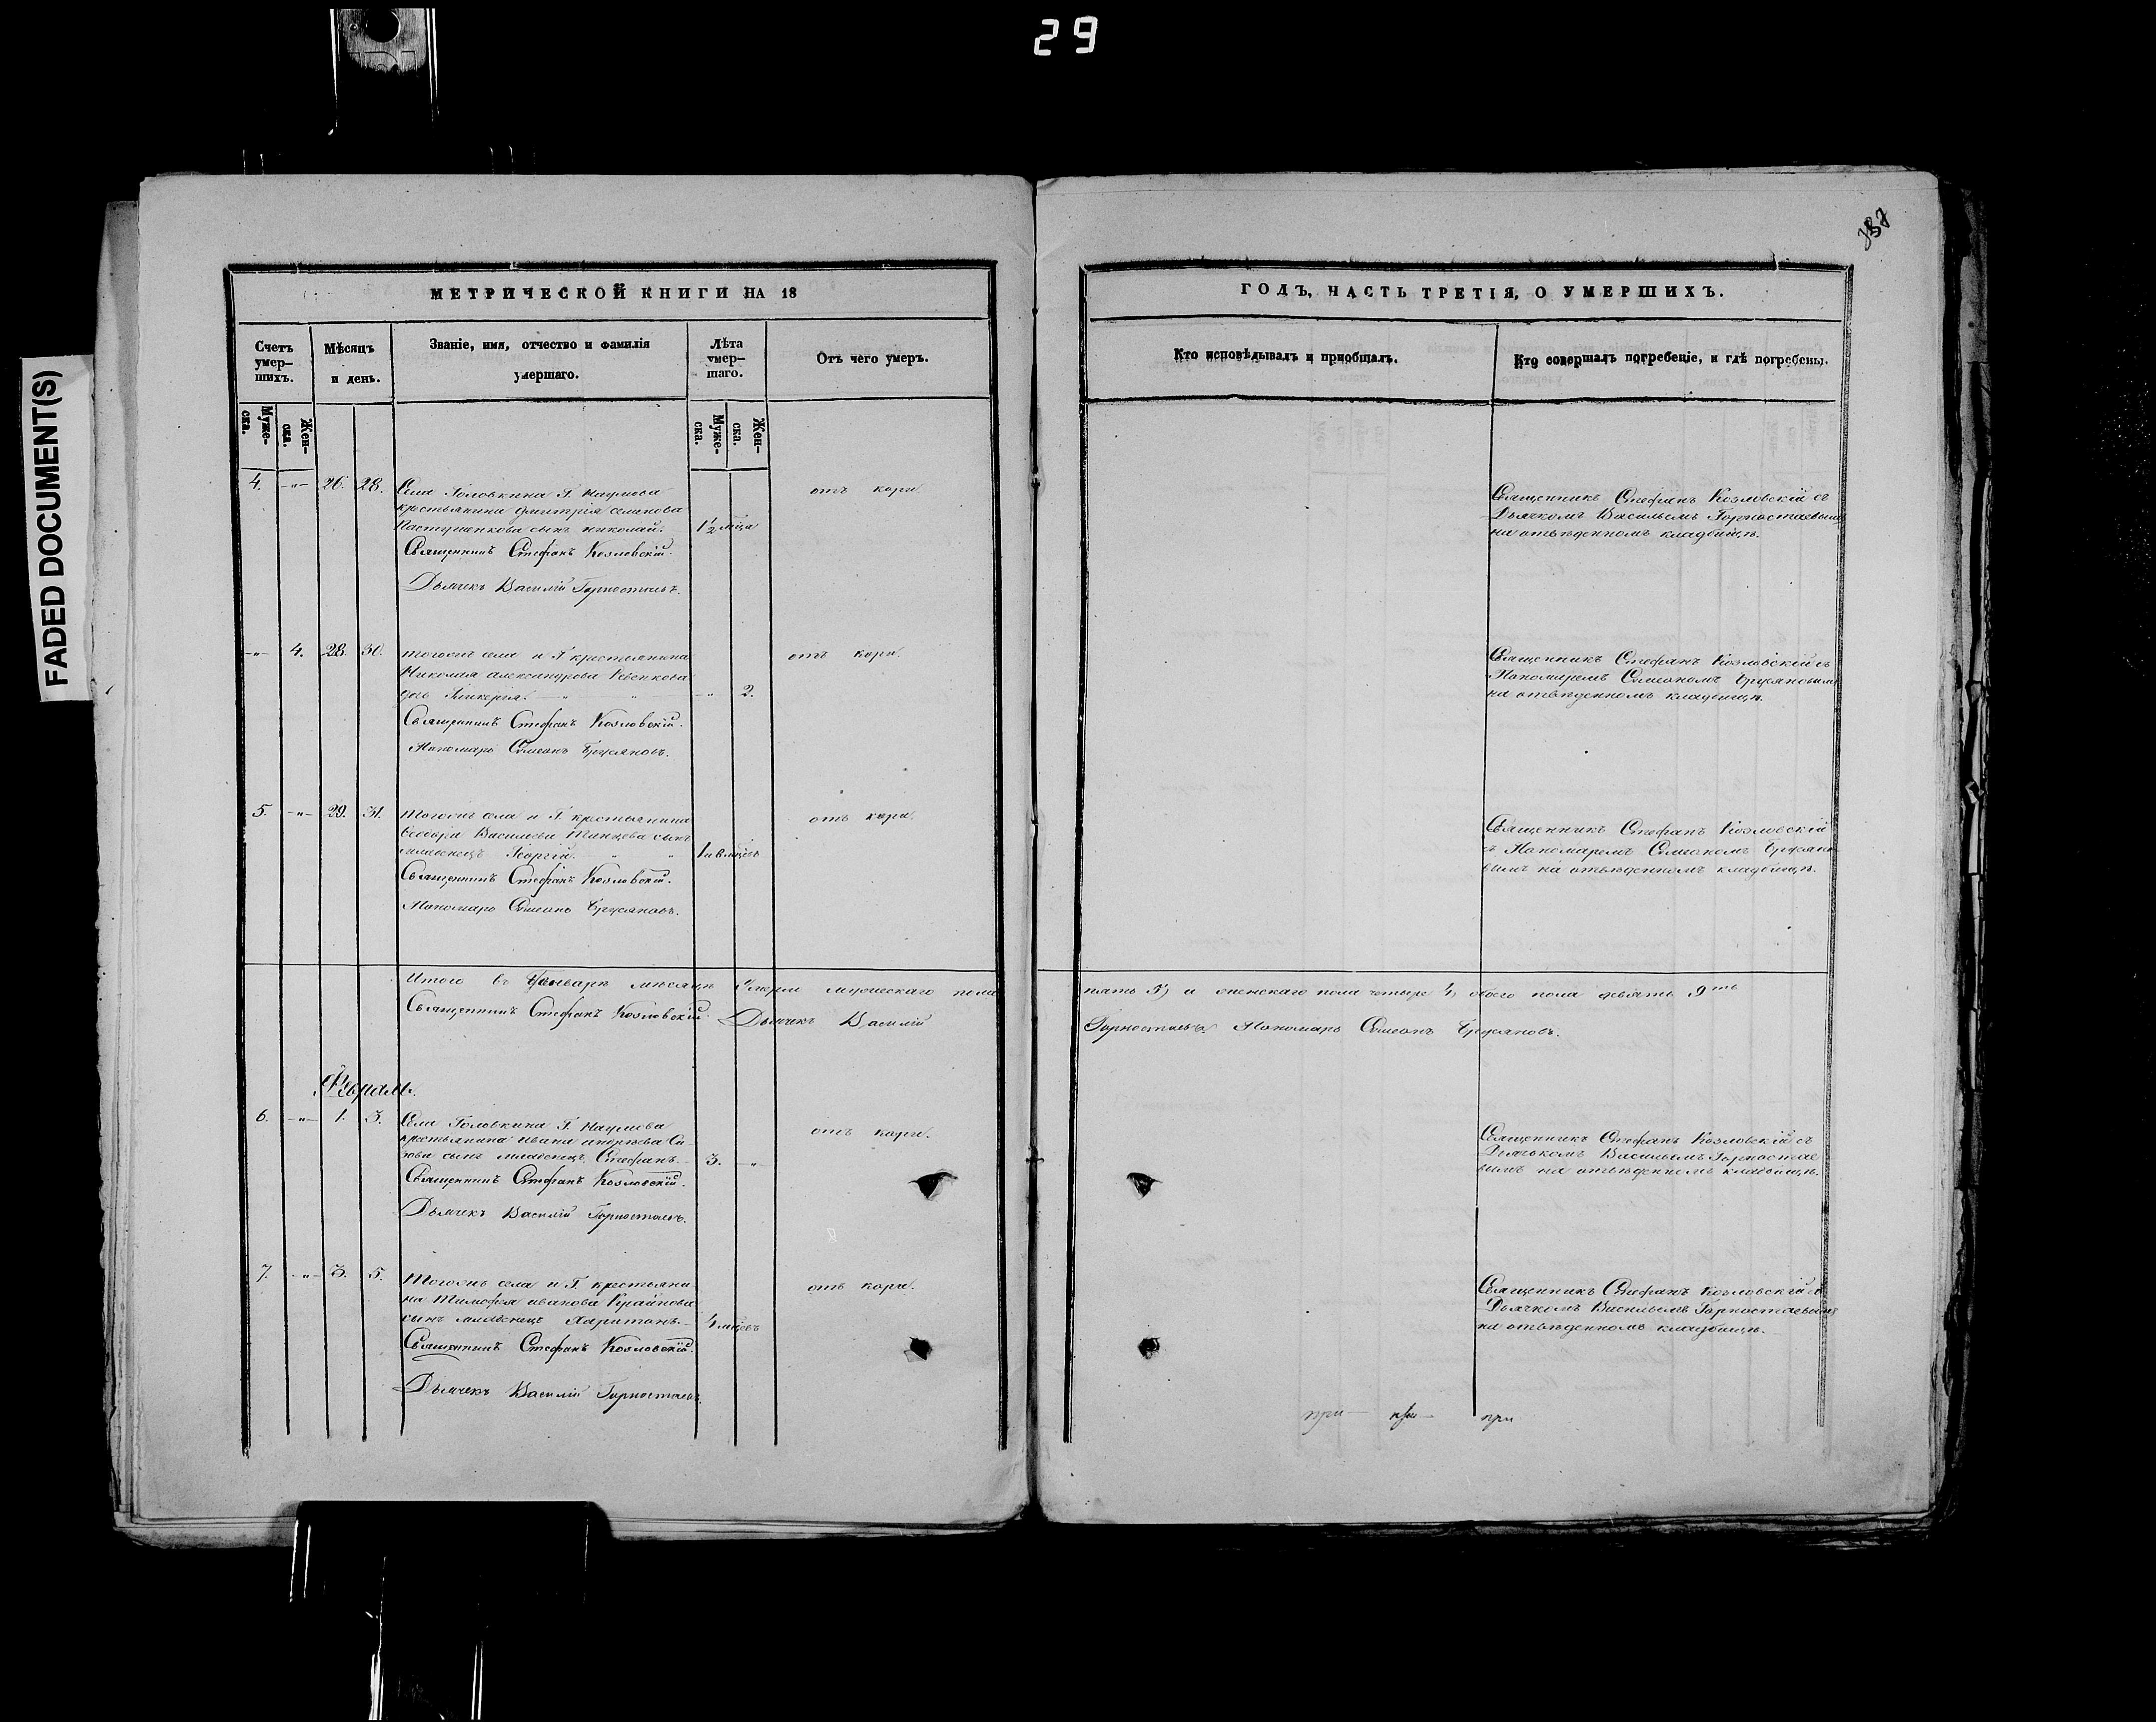 29
FADED DOCUMENT(S)
МЕТРИЧЕСКОЙ КНИГИ НА 18
Счетъ умер-
шихъ.
Мѣсяцъ
и день.
Званіе, имя, отчество и фамилія
умершаго.
Лѣта
умер-
шаго.
Отъ чего умеръ.
Муже-
ска.
Жен-
ска.
Муже-
ска.
Жен-
ска.
4. -"- 26. 28. Села Головкина Г. Наумова
крестьянина Дмитрія Семенова
сынъ Николай. 1 1/2 мѣсца
отъ кори.
Священникъ Стефанъ Козловскій.
Дьячекъ Василій Горностаевъ.
-"- 4. 28. 30. Тогожъ села и Г. крестьянина
Николая Александрова
дочь Гликерія. -"- 2.
отъ кори.
Священникъ Стефанъ Козловскій.
Пономарь Симеонъ
5. -"- 29. 31. Тогожъ села и Г. крестьянина
Василіева сынъ
младенецъ Георгій.
отъ кори.
Священникъ Стефанъ Козловскій.
Пономарь Симеонъ
Итого въ Январѣ мѣсяцѣ умерли мужескаго пола
Священникъ Стефанъ Козловскій. Дьячекъ Василій
Февраль.
6. -"- 1. 3. Села Головкина Г. Наумова
крестьянина Ивана
сынъ младенецъ Стефанъ. 3. -"-
отъ кори.
Священникъ Стефанъ Козловскій.
Дьячекъ Василій Горностаевъ.
7. -"- 3. 5. Тогожъ села и Г. крестьяни-
на Тимофея Иванова Крайнова
сынъ младенецъ Харитонъ. 4 мѣсцевъ
отъ кори.
Священникъ Стефанъ Козловскій.
Дьячекъ Василій Горностаевъ.
ГОДЪ, ЧАСТЬ ТРЕТІЯ, О УМЕРШИХЪ.
Кто исповѣдывалъ и пріобщалъ.
Кто совершалъ погребеніе, и гдѣ погребены.
Священникъ Стефанъ Козловскій съ
Дьячкомъ Васильемъ Горностаевымъ
на отведенномъ кладбищѣ.
Священникъ Стефанъ Козловскій съ
Пономаремъ Симеономъ
на отведенномъ кладбищѣ.
Священникъ Стефанъ Козловскій
съ Пономаремъ Симеономъ
вымъ на отведенномъ кладбищѣ.
пять 5, и женскаго пола четыре 4, обоего пола девять 9ть
Горностаевъ. Пономарь Симеонъ
Священникъ Стефанъ Козловскій съ
Дьячкомъ Васильемъ Горностае-
вымъ на отведенномъ кладбищѣ.
Священникъ Стефанъ Козловскій съ
Дьячкомъ Васильемъ Горностаевымъ
на отведенномъ кладбищѣ.
при- при- при